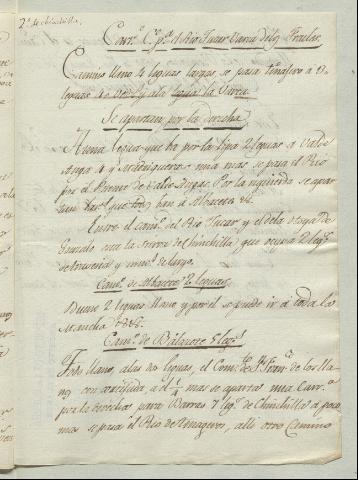 2.º de chinchilla.
Carr.º C.º p.ª el Rio Jucar Varca de los Frailes.
Camino llano 4 leguas largas, se pasa
leguas la Varca
Se apartan por la derecha
A una legua que ha por la fina 2 leguas a Valde
Anga 4 y Madrigueras una mas se pasa el Rio
por el Puente de Valde Angas. Por la izquierda se apar
tan las que van à Albacete &c.
Entre el cam.º del Rio Jucar y el de la
Gonzalo esta la Sierra de Chinchilla, que ocupa 2 leg.s
de travesia y una de largo.
Cam.º de Albacete 2 leguas.
Bueno 2 leguas llano y por el se puede ir á toda la
Mancha &c.
Cam.º de Balazote 5 leg.s
Todo llano, a las dos leguas, el Com.to de S.n Fran.co de los lla
nos con a 1/4 mas se aparta una Carr.ª
por la derecha para Barrax 7 leg.s de Chinchilla a poco
mas se pasa el Rio de allí otro Camino